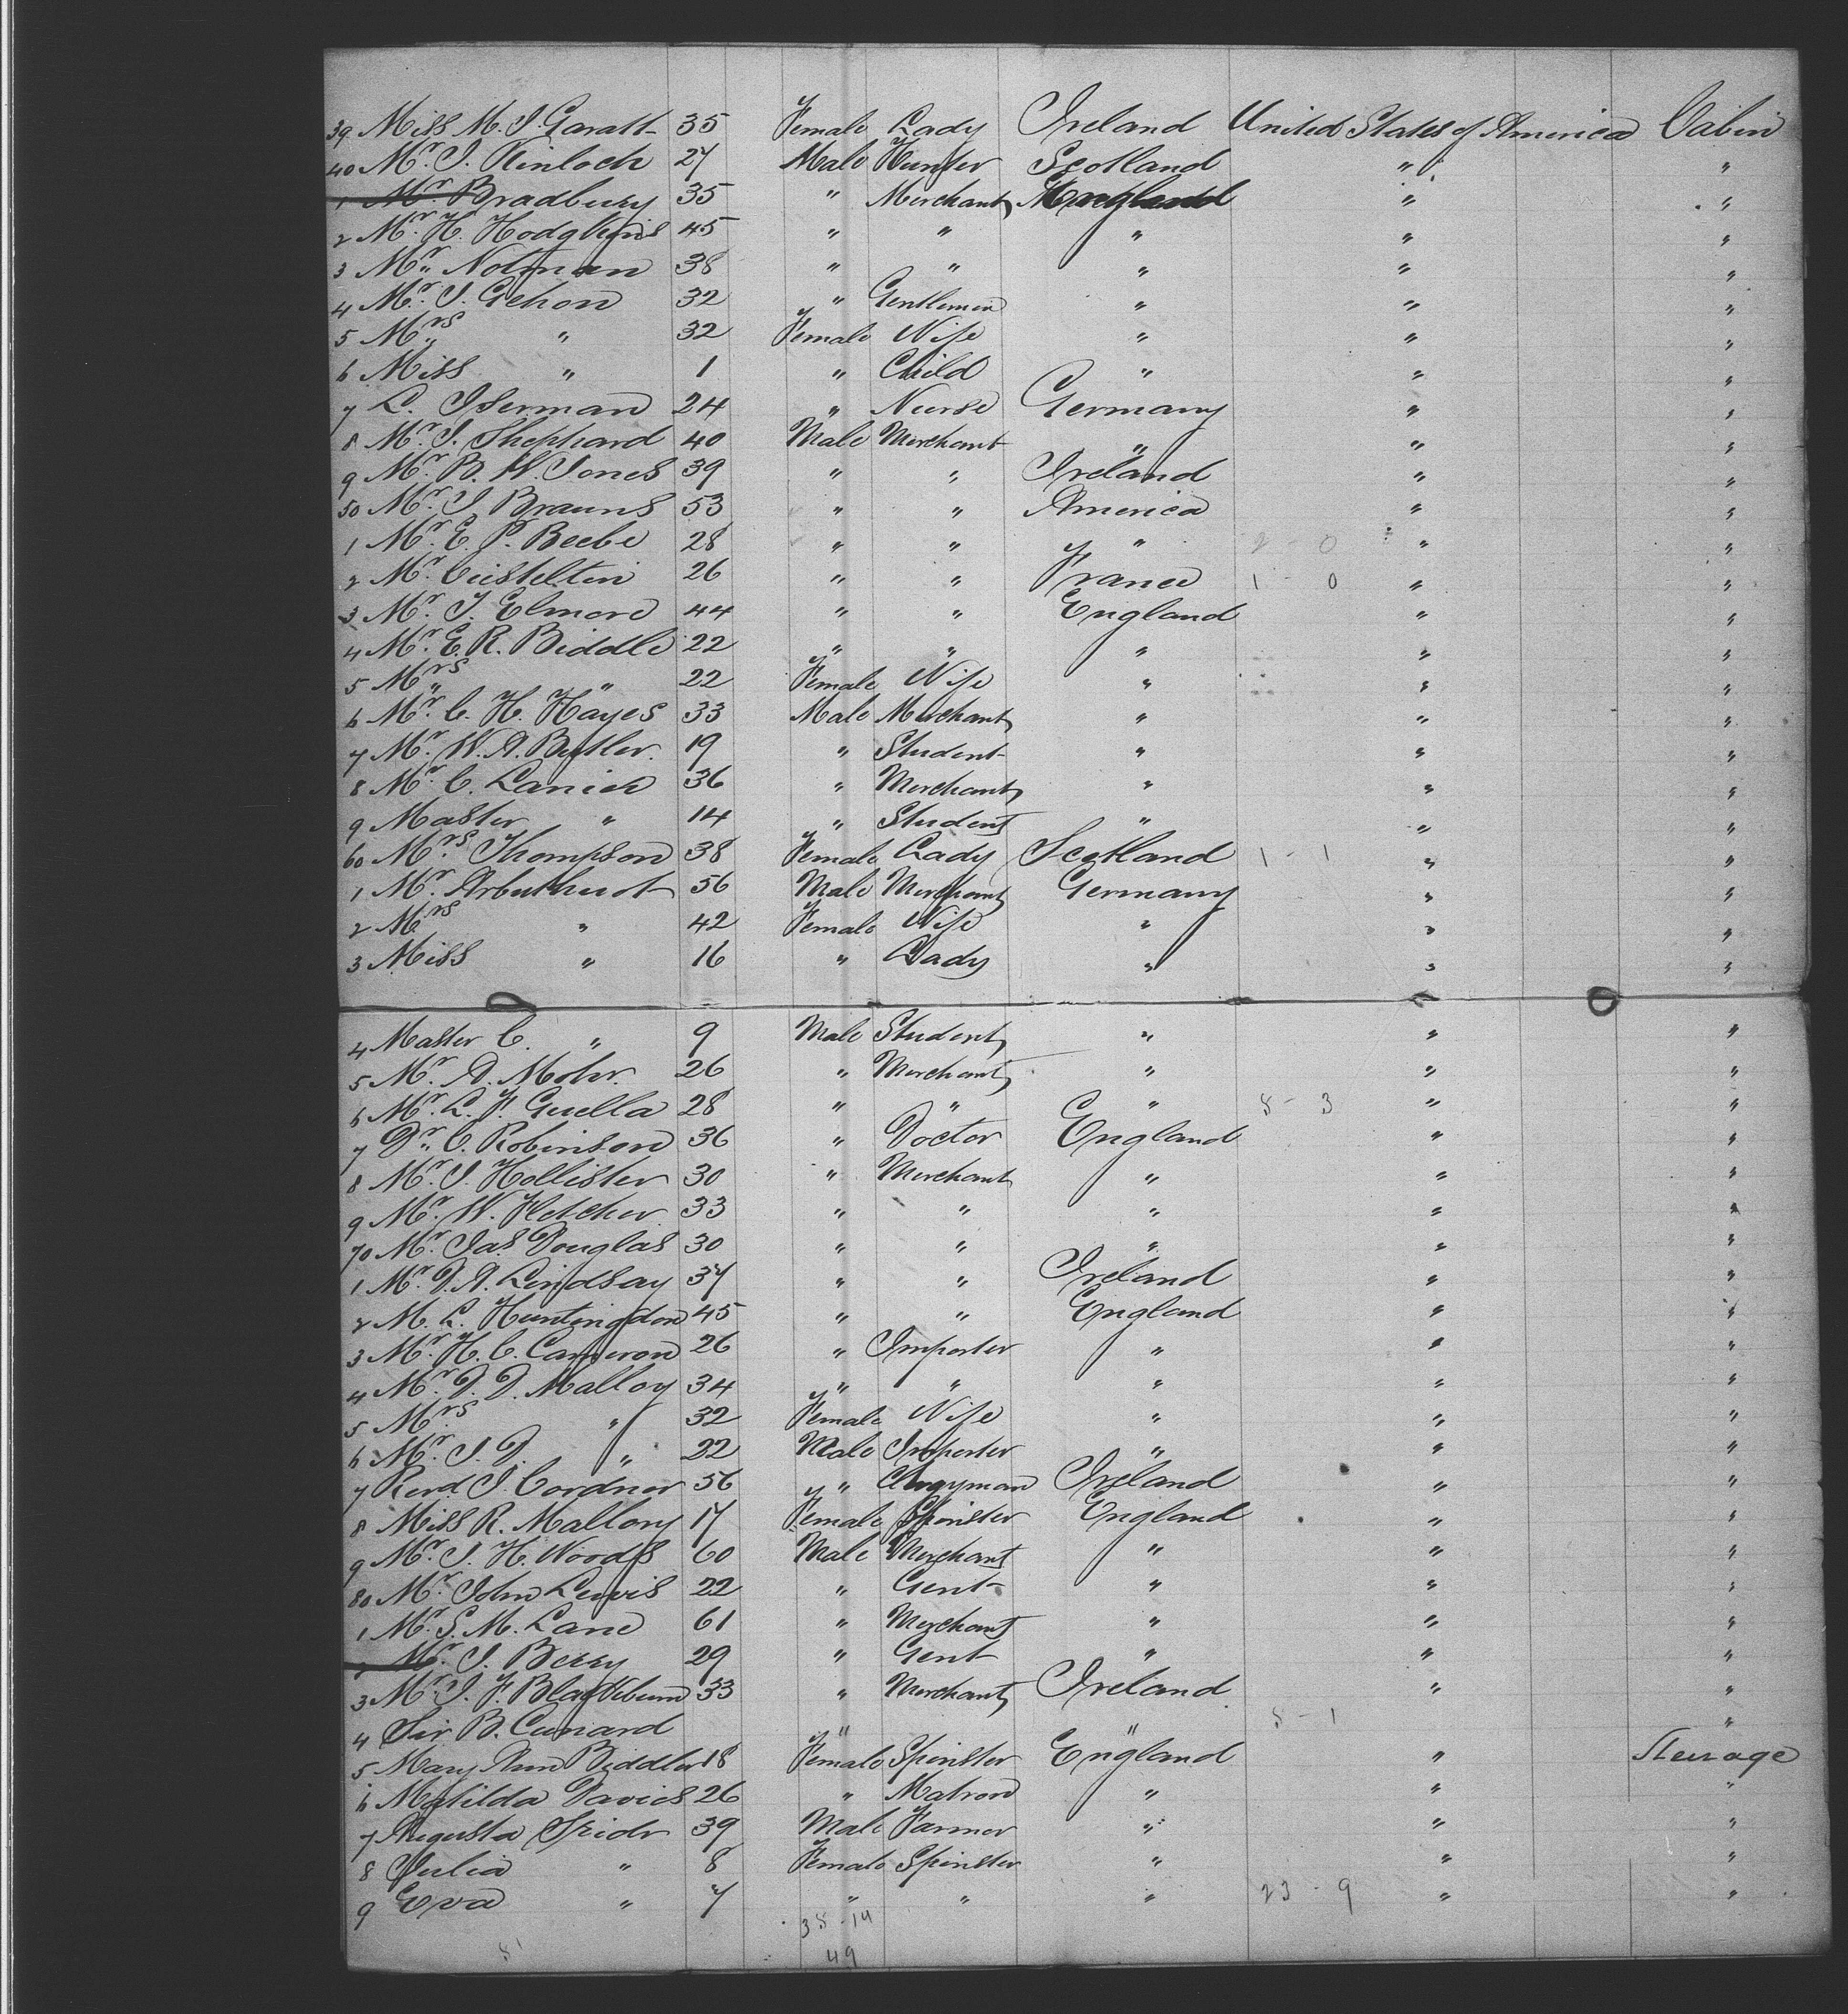 39 Miss M. J. Garatt 35 Female Lady Ireland United States of America Cabin
40 Mr. J. Kinloch 27 Male Hunter Scotland " "
1 Mr. Bradbury 35 " Merchant England " "
2 Mr. H. Hodgkins 45 " " " " "
3 Mr. Notman 38 " " " " "
4 Mr. J. Gehon 32 " Gentleman " " "
5 Mrs " 32 Female Wife " " "
6 Miss " 1 " Child " " "
7 L. Iserman 24 " Nurse Germany " "
8 Mr. J. Shephard 40 Male Merchant " " "
9 Mr. B. W. Jones 39 " " Ireland " "
50 Mr. J. Brauns 53 " " America " "
1 Mr. E. P. Beebe 28 " " " 2 - 0 " "
2 Mr. 26 " " France 1 - 0 " "
3 Mr. J. Elmore 44 " " England " "
4 Mr. E. R. Biddle 22 " " " " "
5 Mrs " 22 Female Wife " " "
6 Mr. C. H. Hayes 33 Male Merchant " " "
7 Mr. W. A. Butler. 19 " Student " " "
8 Mr. C. Lanier 36 " Merchant " " "
9 Master " 14 " Student " " "
60 Mrs. Thompson 38 Female Lady Scotland 1 - 1 " "
1 Mr. Arbuthnot 56 Male Merchant Germany " "
2 Mrs " 42 Female Wife " " "
3 Miss " 16 " Lady " " "
4 Master C. " 9 Male Student " " "
5 Mr. A. Mohr. 26 " Merchant " " "
6 Mr. L. F. Guella 28 " " " 8 - 3 " "
7 Dr. C. Robinson 36 " Doctor England " "
8 Mr. J. Hollister 30 " Merchant " " "
9 Mr. W. Fletcher 33 " " " " "
70 Mr. Jas Douglas 30 " " " " "
1 Mr. D. A. Lindsay 37 " " Ireland " "
2 M. L. Huntingdon 45 " " England " "
3 Mr. H. C. Cameron 26 " Importer " " "
4 Mr. D. D. Mallory 34 " " " " "
5 Mrs " 32 Female Wife " " "
6 Mr. J. D. " 22 Male Importer " " "
7 Revd J. Cordner 56 " Clergyman Ireland " "
8 Miss R. Mallory 17 Female Spinster England " "
9 Mr. J. H. Woods 60 Male Merchant " " "
80 Mr. John Lewis 22 " Gent " " "
1 Mr. S. M. Lane 61 " Merchant " " "
2 Mr. J. Berry 29 " Gent " " "
3 Mr. J. F. Blackburn 33 " Merchant Ireland " "
4 Sir B. Cunard " " 8 - 1 "
5 Mary Ann Biddler 18 Female Spinster England " Steerage
6 Matilda Davies 26 " Matron " " "
7 Augusta 39 Male Farmer " " "
8 Julia " 8 Female Spinster " " "
9 Eva " 7 " " " 23 - 9 " "
35 - 14
81 49